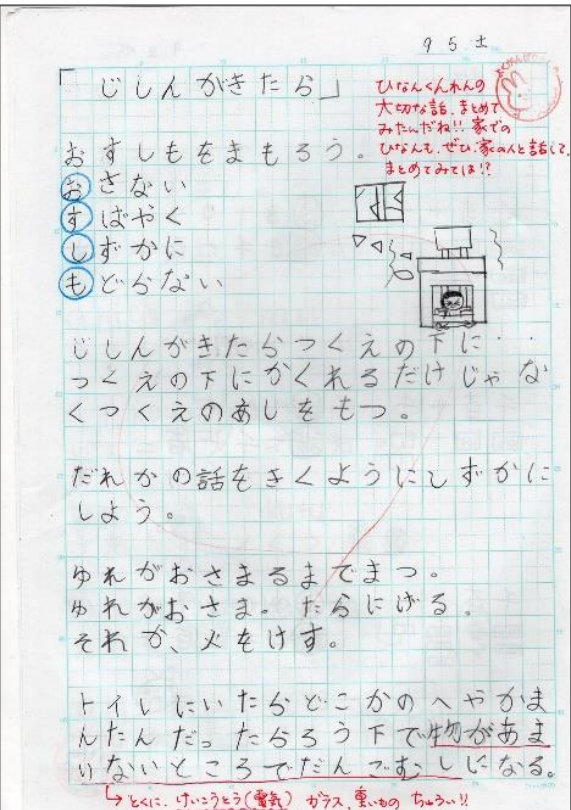 9 5 土
「じしんがきたら」
ひなんくんれんの
大切な話、まとめて
みたんだね!! 家での
ひなんも、ぜひ、家の人と話して、
まとめてみては!?
おすしもをまもろう。
おさない
すばやく
しずかに
もどらない
じしんがきたらつくえの下に・・
つくえの下にかくれるだけじゃな
くつくえのあしをもつ。
だれかの話をきくようにしずかに
しよう。
ゆれがおさまるまでまつ。
ゆれがおさま。たらにげる。
それか、火をけす。
トイレにいたらどこかのへやかま
んたんだったらろう下で物があま
りないところでだんごむしになる。
↳とくに、けいこうとう(電気) ガラス、重いもの ちゅうい!!